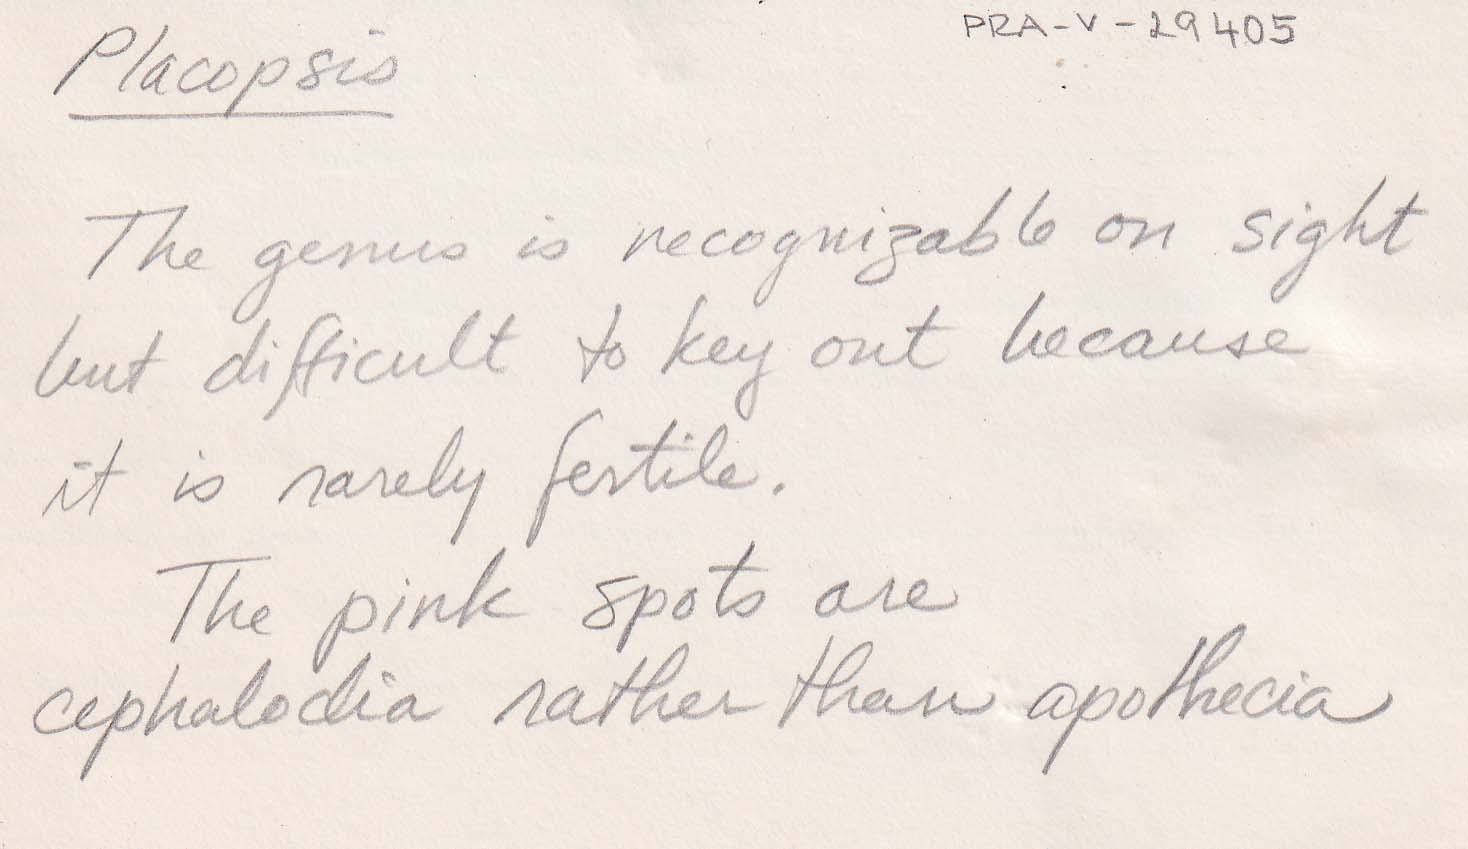 PRA-V-29405
Placopsis
The genus is recognizable on sight
but difficult to key out because
it is rarely fertile.
The pink spots are
cephalodia rather than apothecia